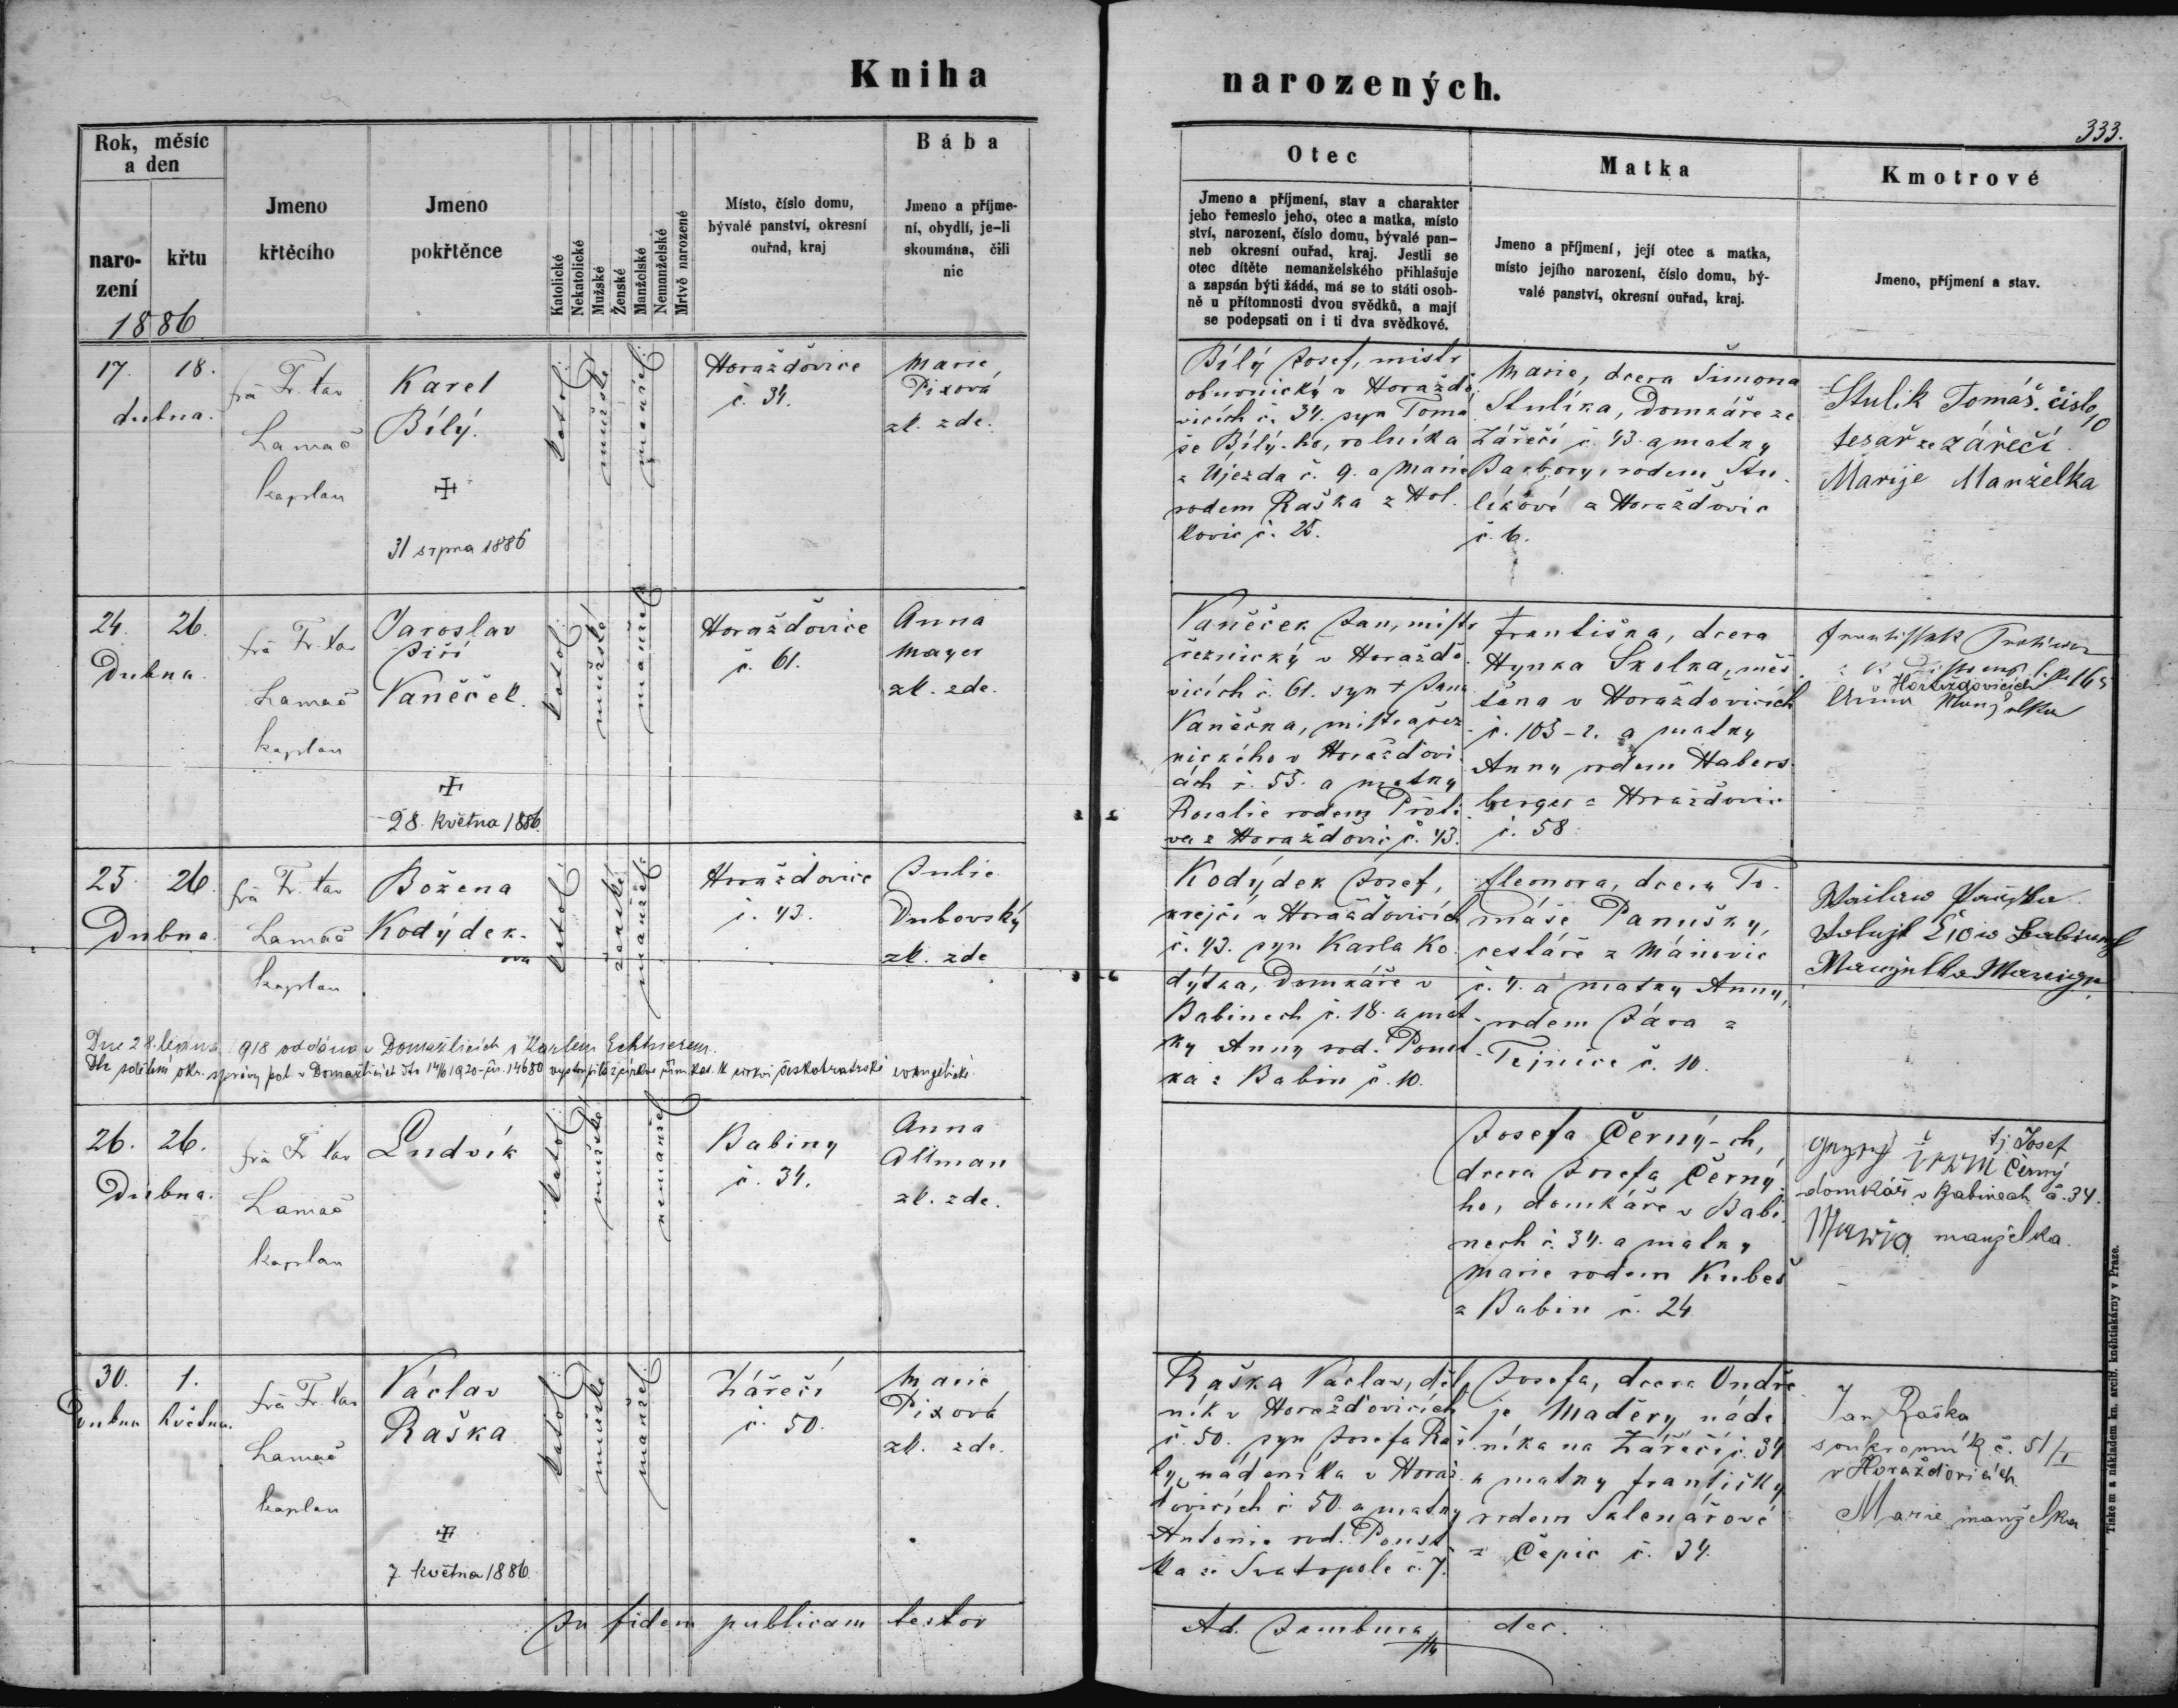 Kniha
narozených.
333.
Rok, měsíc
a den
naro-
zení
křtu
1886
Jmeno
křtěcího
Jmeno
pokřtěnce
Katolické
Nekatolické
Mužské
Ženské
Manželské
Nemanželské
Mrtvě narozené
Místo, číslo domu,
bývalé panství, okresní
ouřad, kraj
Bába
Jmeno a příjme-
ní, obydlí, je-li
skoumána, čili
nic
Otec
Jmeno a příjmení, stav a charakter
jeho řemeslo jeho, otec a matka, místo
ství, narození, číslo domu, bývalé pan-
neb okresní ouřad, kraj. Jestli se
otec dítěte nemanželského přihlašuje
a zapsán býti žádá, má se to státi osob-
ně u přítomnosti dvou svědků, a mají
se podepsati on i ti dva svědkové.
Matka
Jmeno a příjmení, její otec a matka,
místo jejího narození, číslo domu, bý-
valé panství, okresní ouřad, kraj.
Kmotrové
Jmeno, příjmení a stav.
17. 18.
dubna.
Fr. Xav
Lamač
kaplan
Karel
Bílý.
31 srpna 1886
katol
mužské
manžel
Horažďovice
č. 34.
Marie
Pixová
zk. zde.
Bílý Josef, mistr
obuvnický v Horaždo
vicích č. 34. syn Tomá
še Bílý-ho, rolníka
z Újezda č. 9. a Marie
rodem Raška z Hol
kovic č. 25.
Marie, dcera Šimona
Stulíka, domkáře ze
Zářečí č. 43. a matky
Barbory, rodem Stu
líkové z Horažďovic
č. 6.
Stulik Tomáš. čislo 10
tesař ze zářečí
Marije Manželka
24. 26.
Dubna.
Fr. Xav
Lamač
kaplan
Jaroslav
Jiří
Vaněček.
28. května 1886.
katol
mužské
manžel
Horažďovice
č. 61.
Anna
Mayer
zk. zde.
Vaněček Jan, mistr
řeznický v Horaždo
vicích č. 61. syn + Jana
Vaněčka, mistra řez
nického v Horažďovi
cích č. 55. a matky
Rosalie rodem Proti
va z Horažďovic č. 43.
Františka, dcera
Hynka Skolka, měš
ťana v Horažďovicích
č. 103-2. a matky
Anny rodem Habers
berger z Horažďovic
č. 58
Horažďovicích
25. 26.
Dubna.
Fr. Xav
Lamač
kaplan
Božena
Kodýdek-
ova
katol
ženské
manžel
Horažďovice
č. 43.
Julie
Dubovský
zk. zde
Kodýdek Josef,
krejčí v Horažďovicích
č. 43. syn Karla Ko
dýdka, Domkáře v
Babinech č. 18. a mat
ky Anny rod. Poust
ka z Babin č. 10.
Eleonora, dcera To
máše Panušky,
cestáře z Mánovic
č. 4. a matky Anny,
rodem Jára z
Tejnice č. 10.
Dne 28. ledna 1918 oddána v Domažlicích s Karlem
26. 26.
Dubna.
Fr. Xav
Lamač
kaplan
Ludvík
katol
mužské
nemanžel
Babiny
č. 34.
Anna
Altman
zk. zde.
Josefa Černý-ch,
dcera Josefa Černý-
ho, domkáře v Babi
nech č. 34. a matky
Marie rodem Kubeš
z Babin č. 24
tj Josef
Černý
domkář v Babinech č. 34.
manželka.
30. 1.
Dubna května.
Fr. Xav
Lamač
kaplan
Václav
Raška
7. května 1886.
katol
mužské
manžel
Zářečí
č. 50.
Marie
Pixová
zk. zde.
Raška Václav, děl
ník v Horažďovicích
č. 50. syn Josefa Raš
ky, nádeníka v Horaž
ďovicích č. 50. a matky
Antonie rod. Poust
ka ze Svatopole č. 7.
Josefa, dcera Ondře
je Maděry náde
níka na Zářečí č. 34
a matky Františky
rodem Sklenářové
z Čepic č. 34.
Jan Raška
soukromník č. 51/I
v Horažďovicích
Marie manželka
In fidem publicam testor
Ad. Jambura dec.
Tiskem a nákladem kn. arcib. knihtiskárny v Praze.